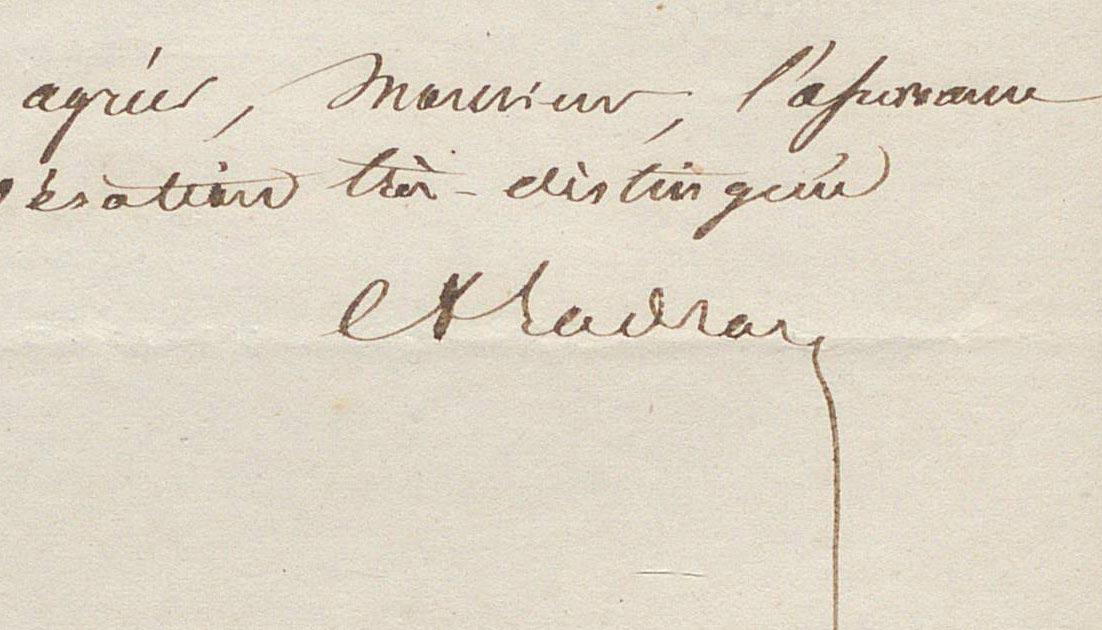 agréer, Monsieur, l'assurance
dération très-distinguée